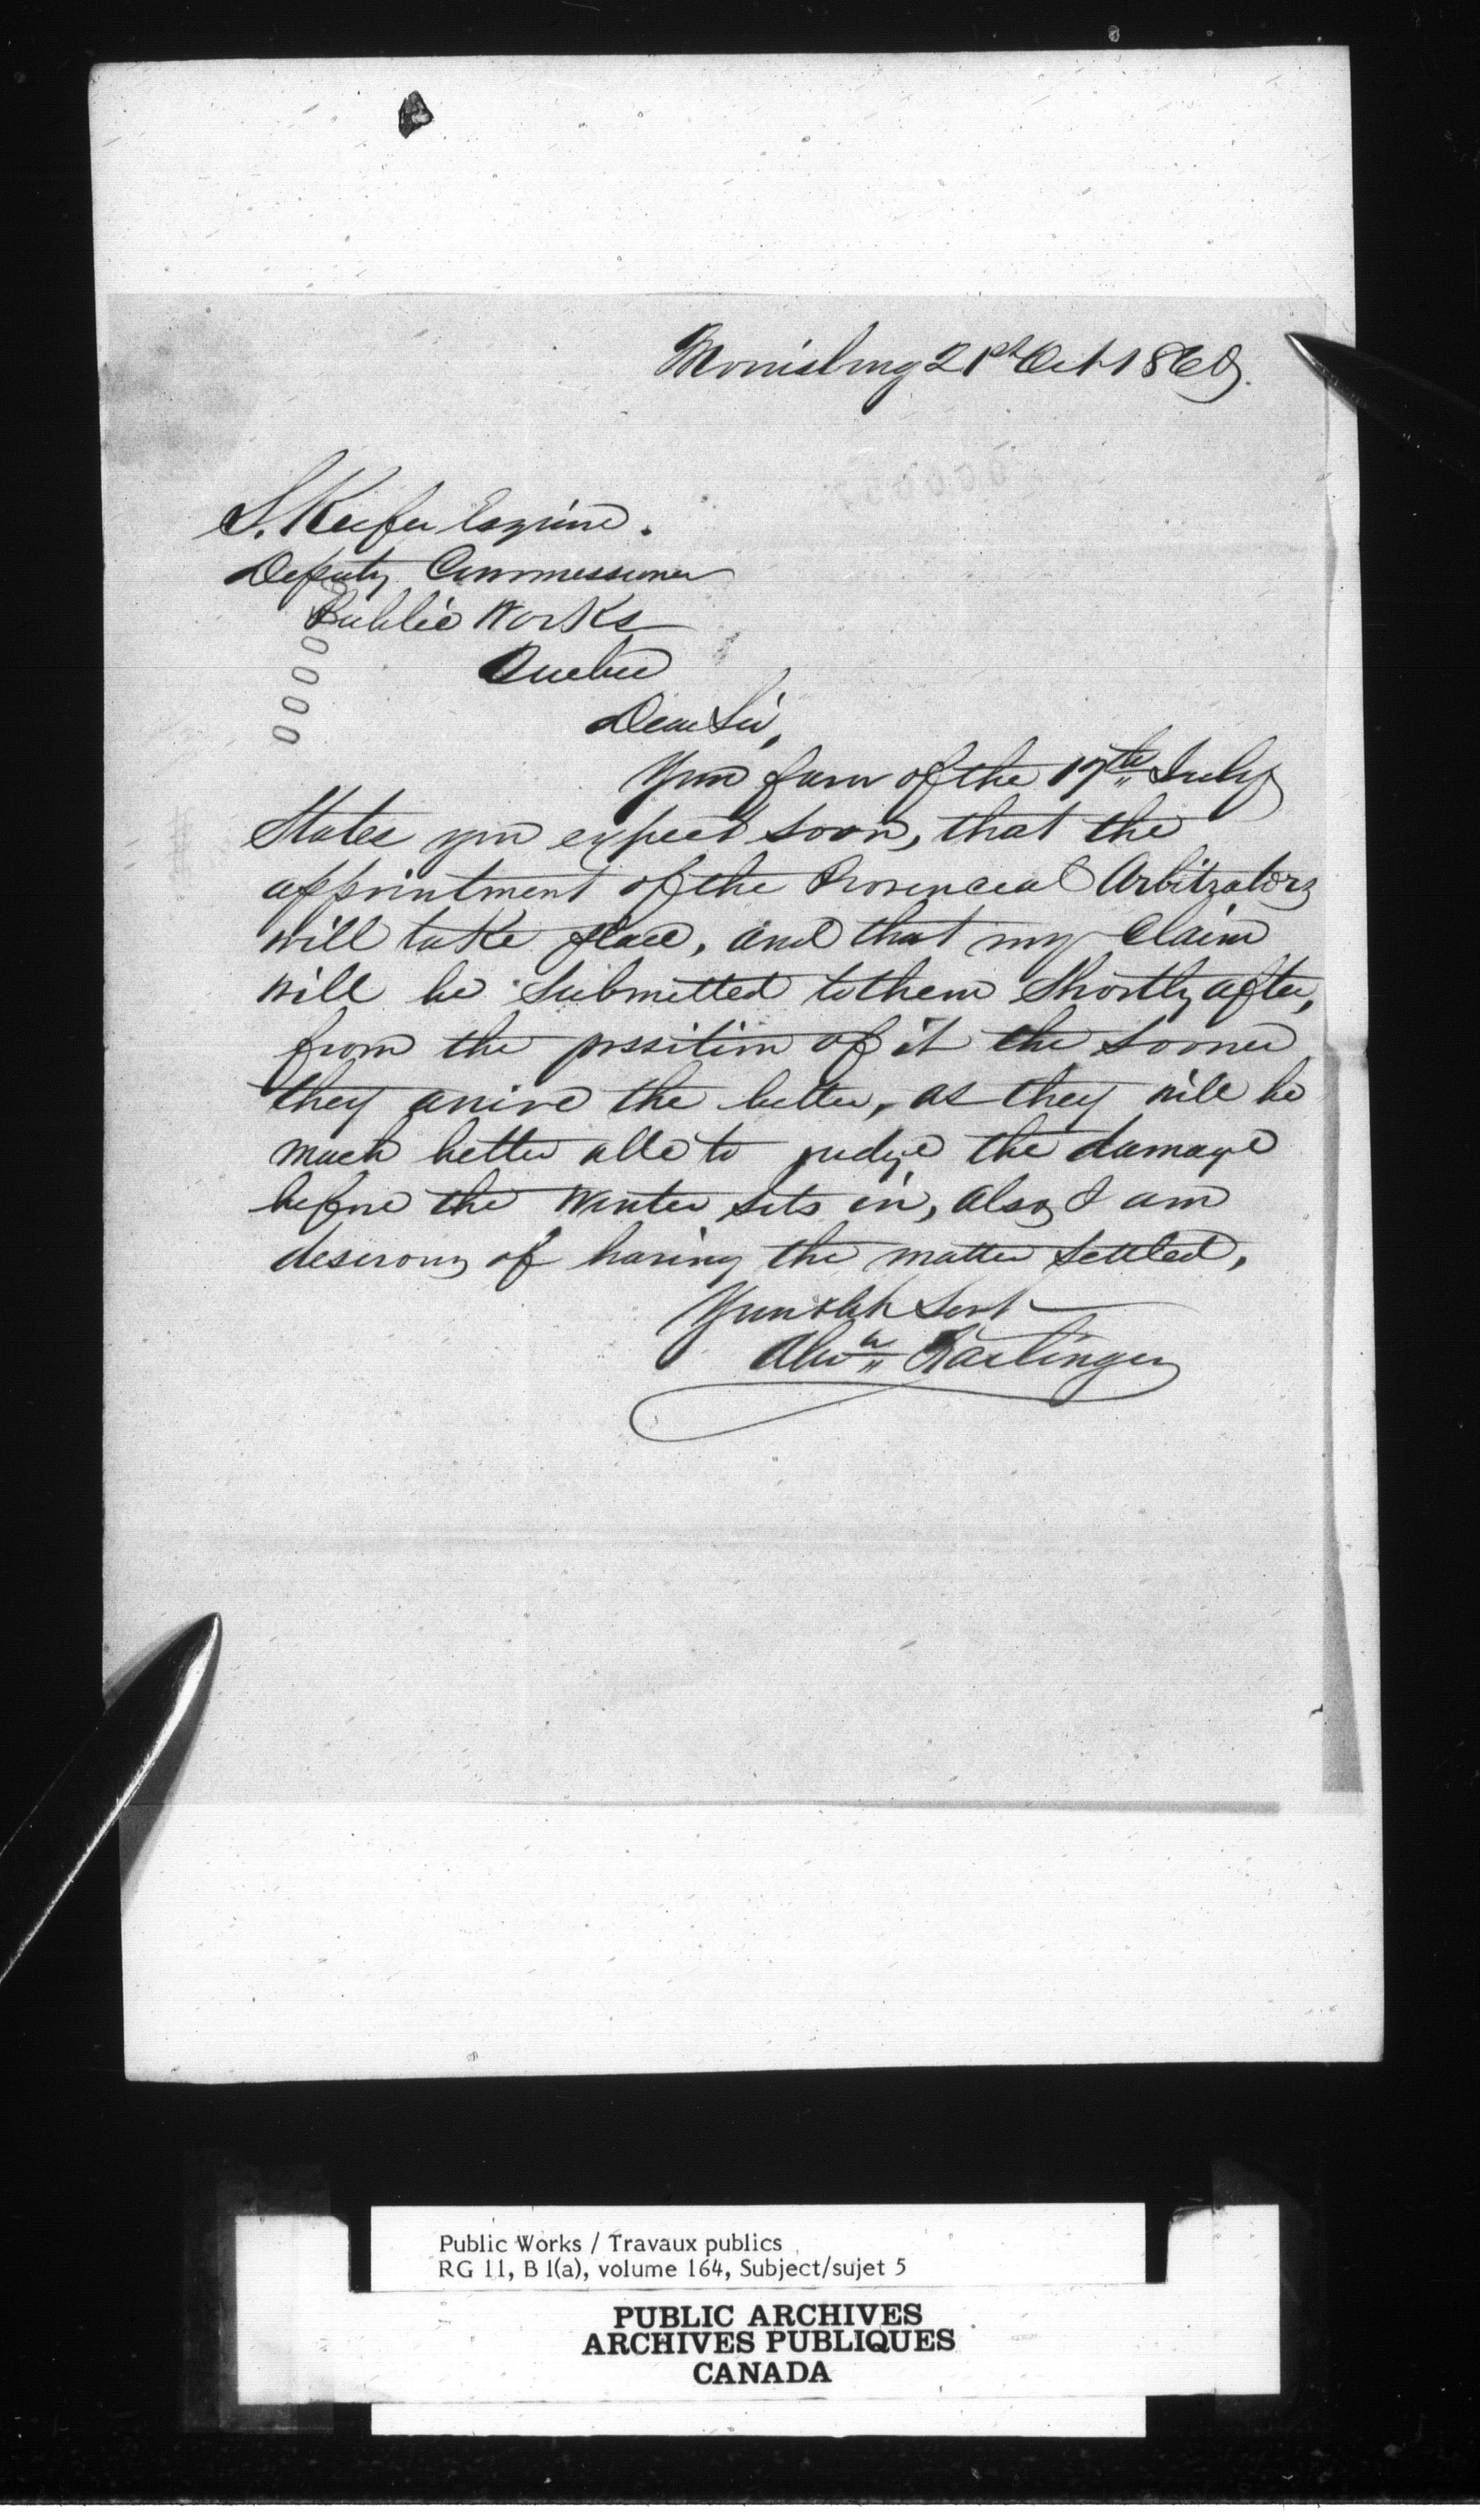 Morrisburg 21st Oct 1860.
S. Keefer Esquire.
Deputy Commessioner
Public Works
Quebec
Dear Sir,
Your favor of the 17th July
States you expect soon, that the
appointment of the Provencial Arbitrators
will take place, and that my Claim
will be Submitted to them Shortly after,
from the possition of it the sooner
they arrive the better, as they will be
much better able to judge the damage
before the Winter sets in, also I am
deserous of having the matter settled,
Your obt Servt
Alexr
0000
Public Works / Travaux publics
RG 11, B 1(a), volume 164, Subject/sujet 5
PUBLIC ARCHIVES
ARCHIVES PUBLIQUES
CANADA